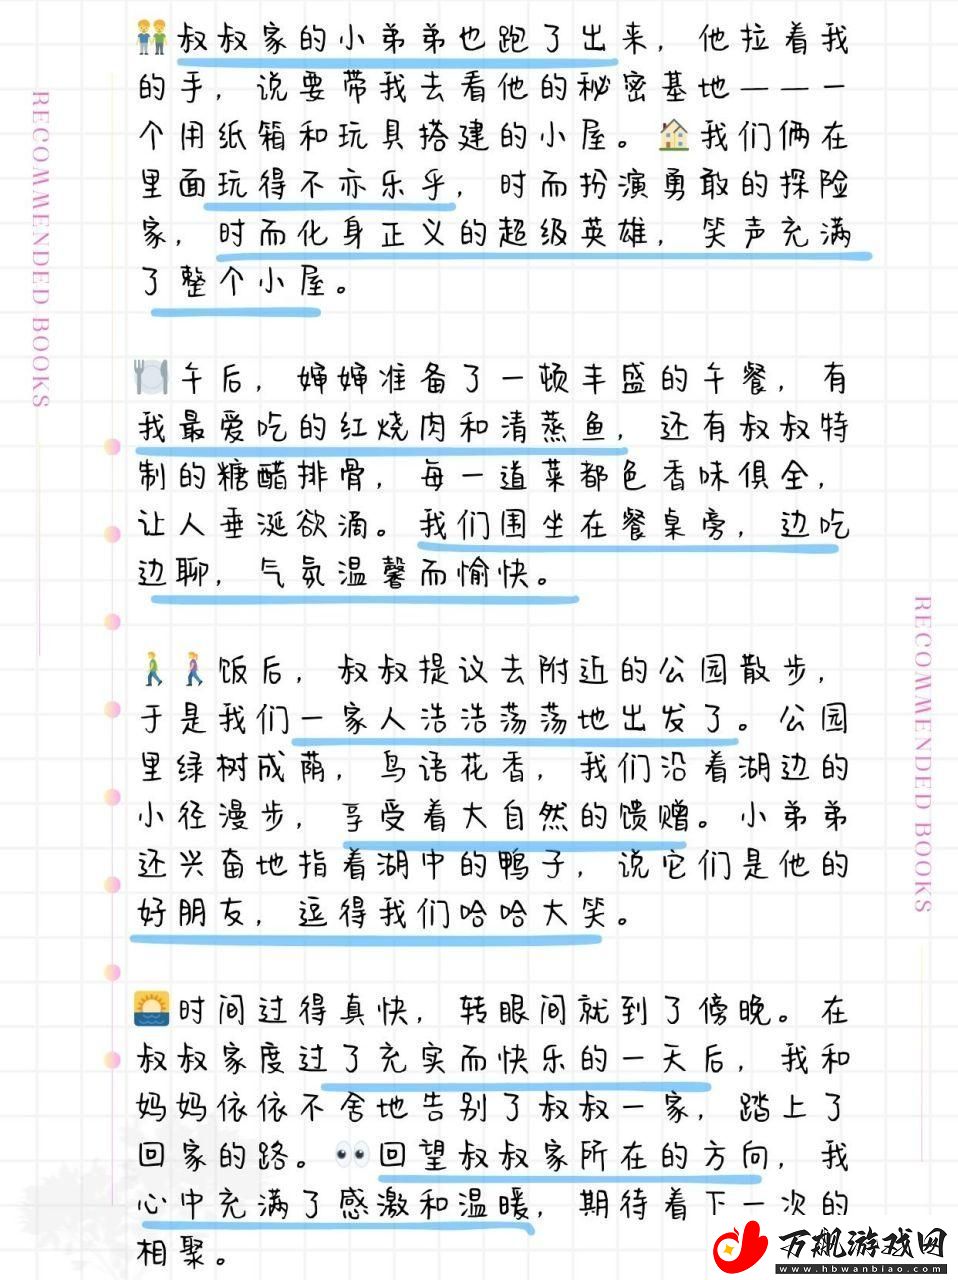 叔叔家的小弟弟也跑了出来，他拉着我
的手，说要带我去看他的秘密基地———一
个用纸箱和玩具搭建的小屋。🏠我们俩在
里面玩得不亦乐乎，时而扮演勇敢的探险
家，时而化身正义的超级英雄，笑声充满
了整个小屋。
午后，婶婶准备了一顿丰盛的午餐，有
我最爱吃的红烧肉和清蒸鱼，还有叔叔特
制的糖醋排骨，每一道菜都色香味俱全，
让人垂涎欲滴。我们围坐在餐桌旁，边吃
边聊，气氛温馨而愉快。
饭后，叔叔提议去附近的公园散步，
于是我们一家人浩浩荡荡地出发了。公园
里绿树成荫，鸟语花香，我们沿着湖边的
小径漫步，享受着大自然的馈赠。小弟弟
还兴奋地指着湖中的鸭子，说它们是他的
好朋友，逗得我们哈哈大笑。
时间过得真快，转眼间就到了傍晚。在
叔叔家度过了充实而快乐的一天后，我和
妈妈依依不舍地告别了叔叔一家，踏上了
回家的路。👀回望叔叔家所在的方向，我
心中充满了感激和温暖，期待着下一次的
相聚。
RECOMMENDED BOOKS
RECOMMENDED BOOKS
万飙游戏网
www.hbwanbiao.com